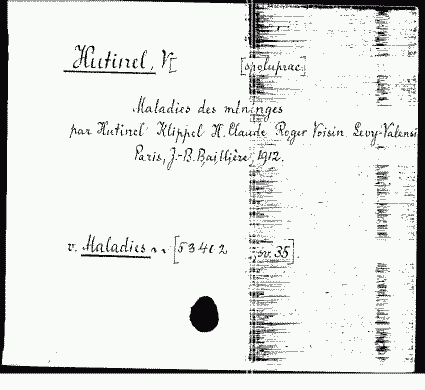 Hutinel, V[ [spoluprac.]
Maladies des méninges
par Hutinel Klippel H. Claude Roger Voisin Levy-Valensi
Paris, J.-B. Baillière, 1912.
v. Maladies .. [53402 sv. 35].